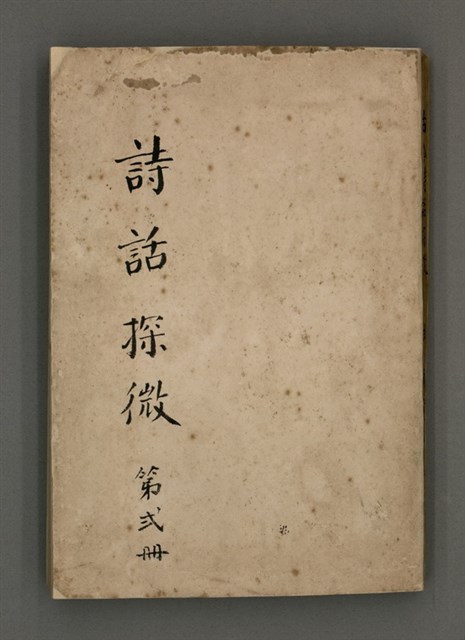 詩話探微 第弍冊